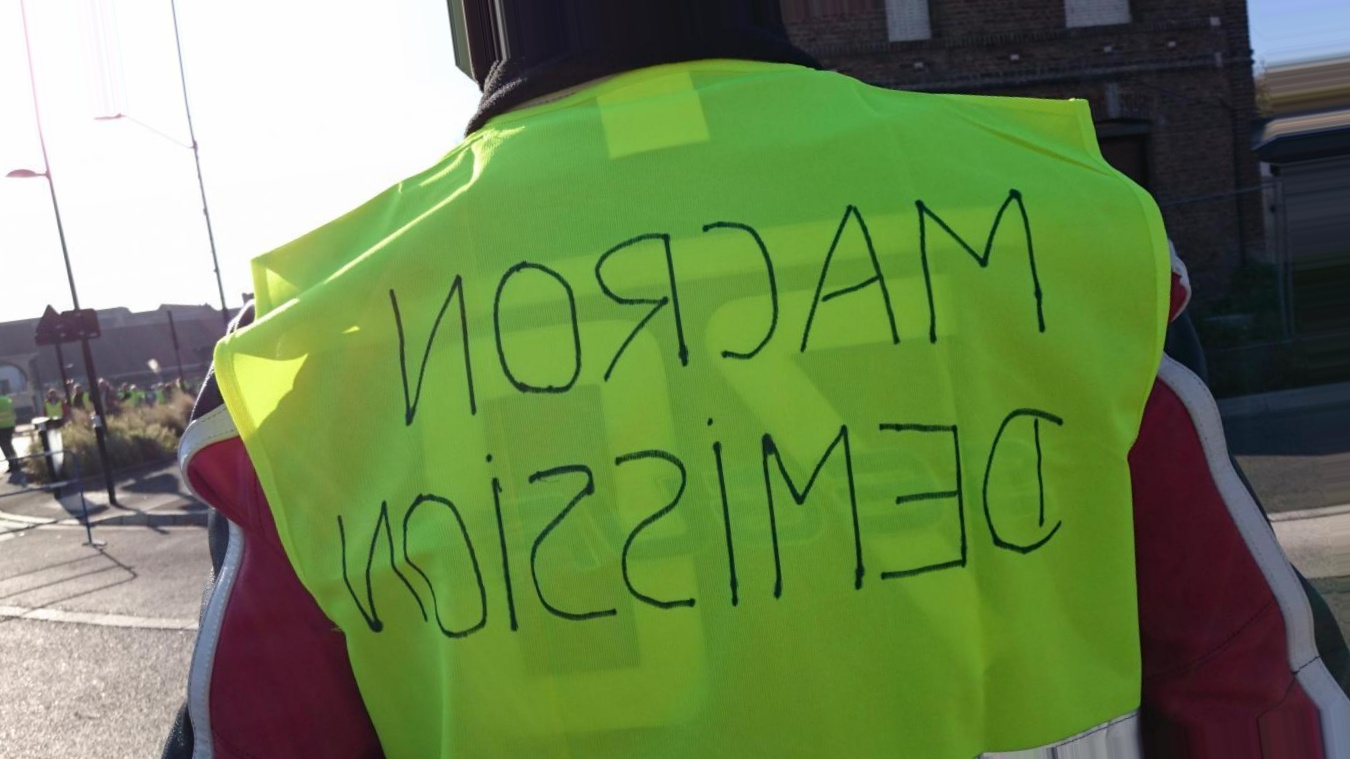 MACRON
DEMISSION